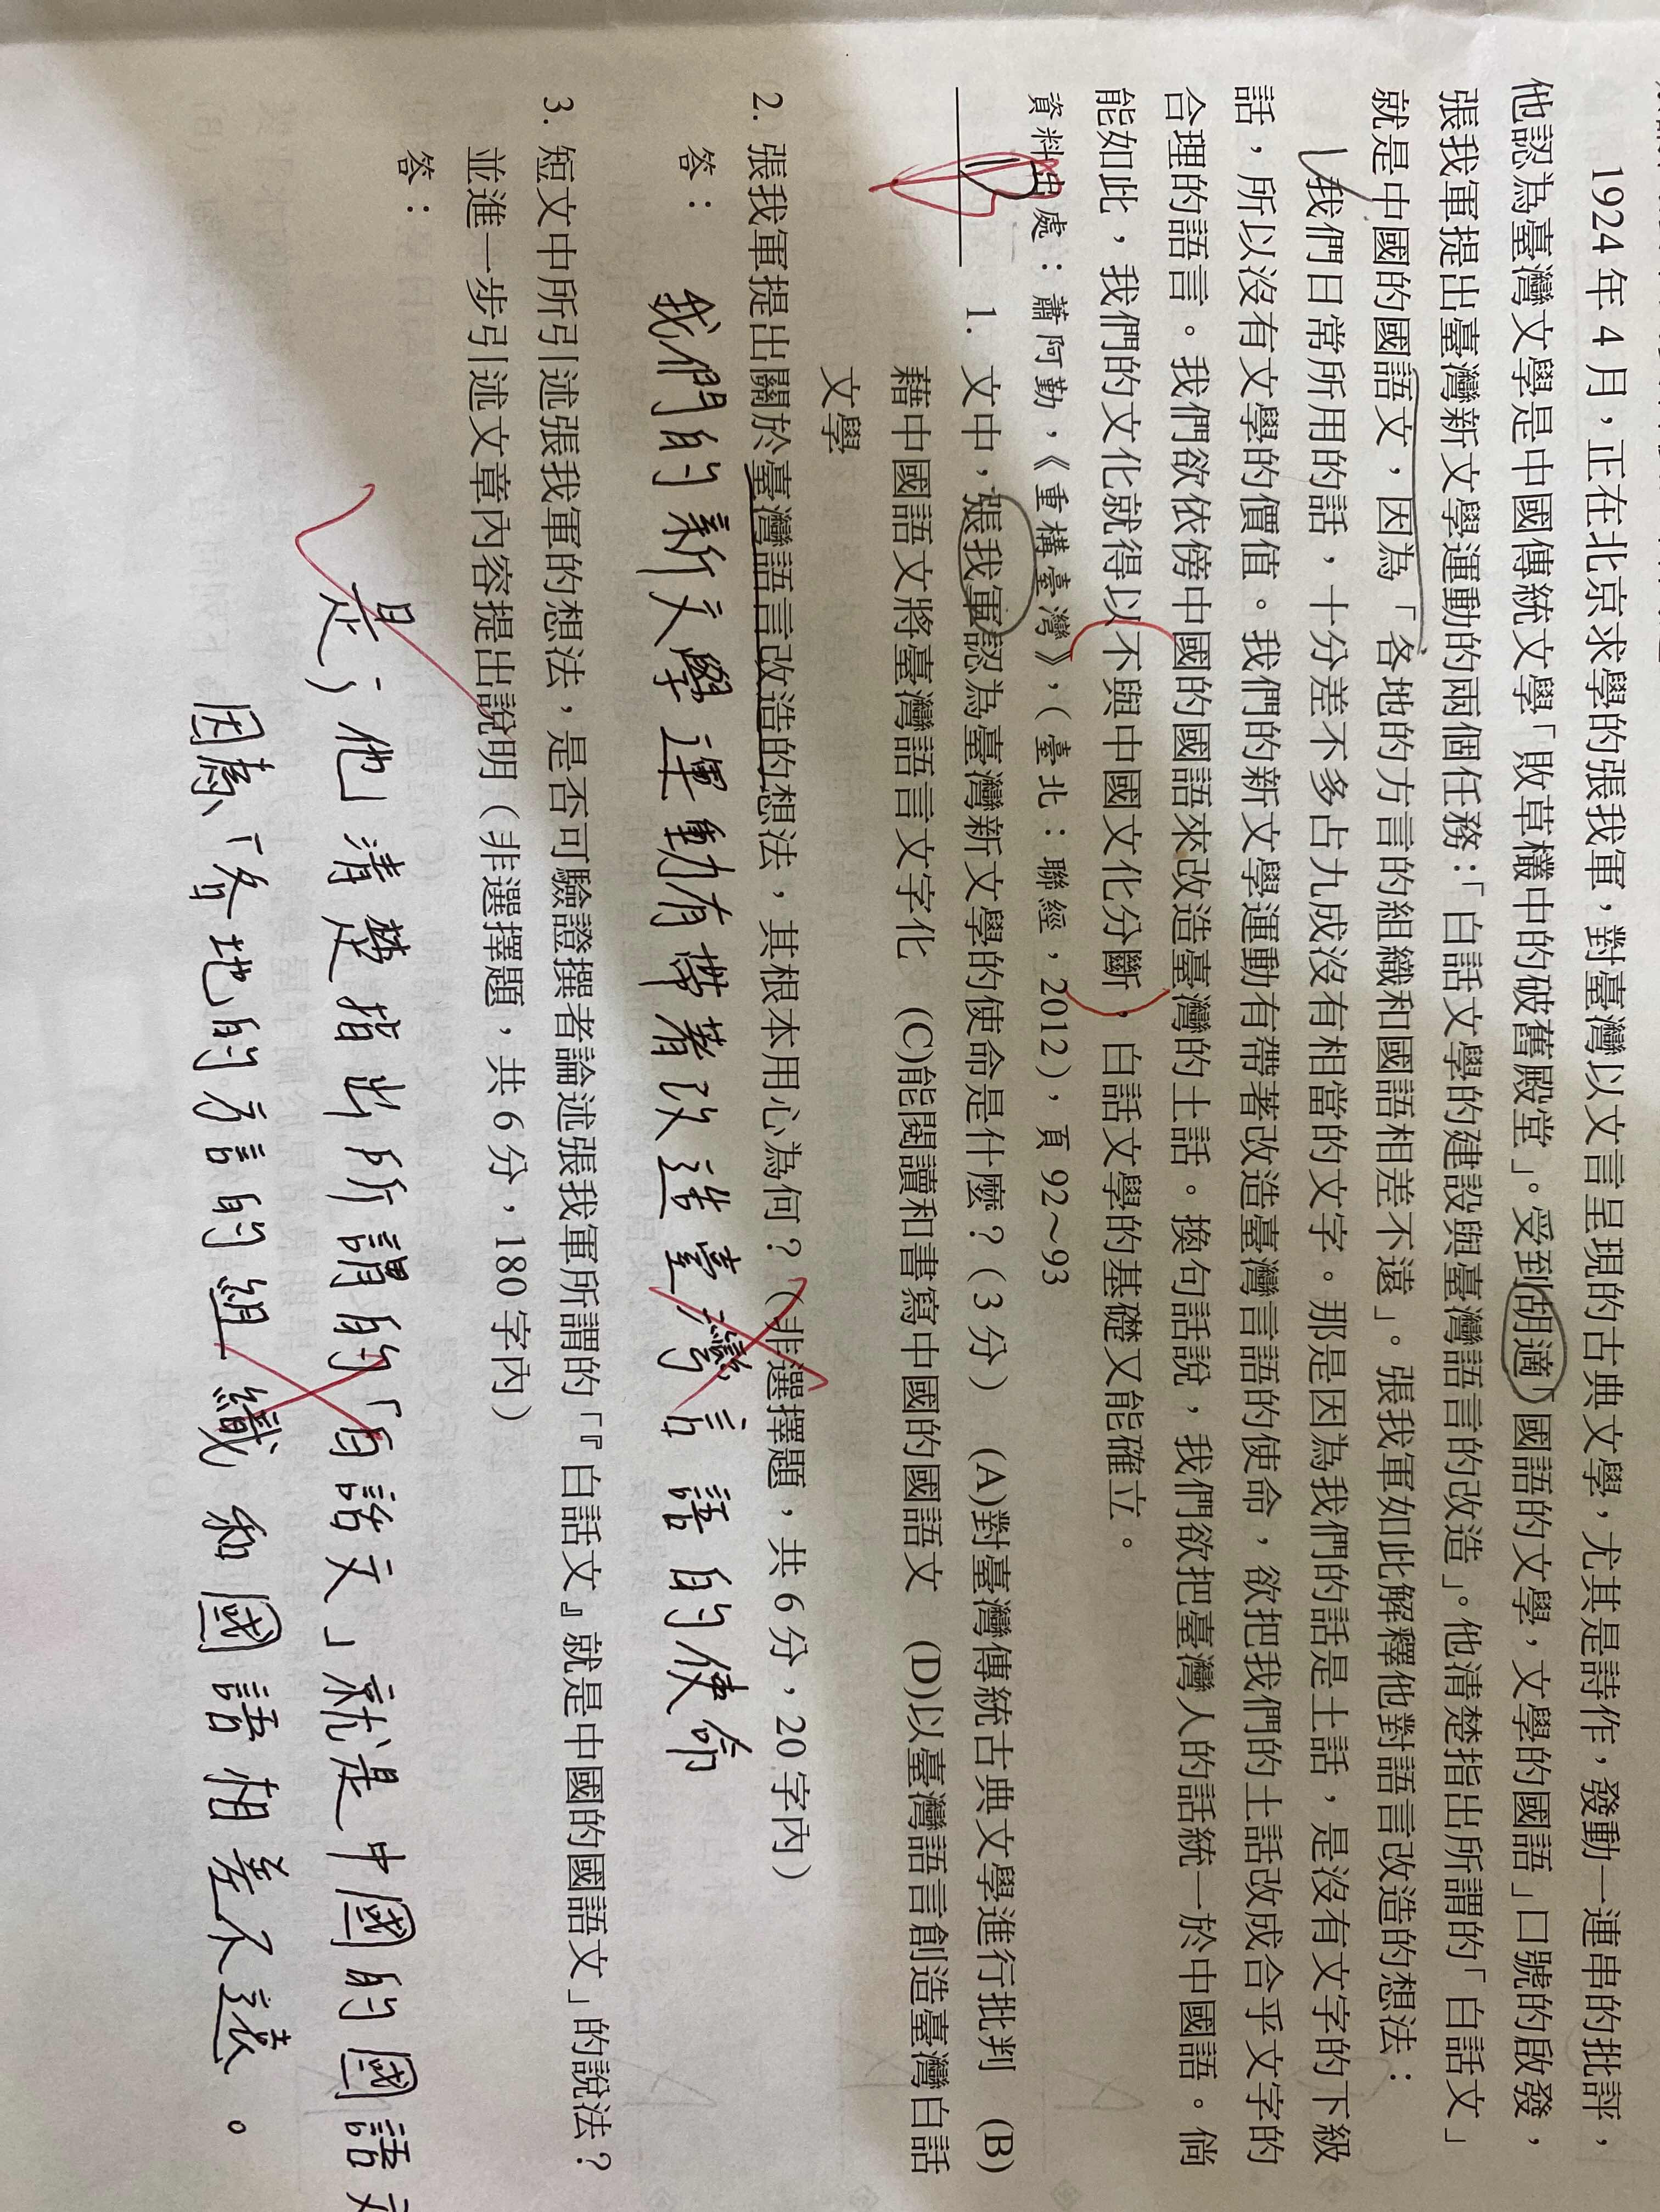 1924 年 4 月，正在北京求學的張我軍，對臺灣以文言呈現的古典文學，尤其是詩作，發動一連串的批評，
他認為臺灣文學是中國傳統文學「敗草欉中的破舊殿堂」。受到胡適「國語的文學，文學的國語」口號的啟發，
張我軍提出臺灣新文學運動的兩個任務：「白話文學的建設與臺灣語言的改造」。他清楚指出所謂的「白話文」
就是中國的國語文，因為「各地的方言的組織和國語相差不遠」。張我軍如此解釋他對語言改造的想法：
我們日常所用的話，十分差不多占九成沒有相當的文字。那是因為我們的話是土話，是沒有文字的下級
話，所以沒有文學的價值。我們的新文學運動有帶著改造臺灣言語的使命，欲把我們的土話改成合乎文字的
合理的語言。我們欲依傍中國的國語來改造臺灣的土話。換句話說，我們欲把臺灣人的話統一於中國語。倘
能如此，我們的文化就得以不與中國文化分斷，白話文學的基礎又能確立。
資料出處：蕭阿勤，《重構臺灣》，（臺北：聯經，2012），頁 92～93
1. 文中，張我軍認為臺灣新文學的使命是什麼？（3 分） (A)對臺灣傳統古典文學進行批判 (B)
藉中國語文將臺灣語言文字化 (C)能閱讀和書寫中國的國語文 (D)以臺灣語言創造臺灣白話
文學
2. 張我軍提出關於臺灣語言改造的想法，其根本用心為何？（非選擇題，共 6 分，20 字內）
答：
我們的新文學運動有帶著改造臺灣言語的使命
3. 短文中所引述張我軍的想法，是否可驗證撰者論述張我軍所謂的「『白話文』就是中國的國語文」的說法？
並進一步引述文章內容提出說明（非選擇題，共 6 分，180 字內）
答：
是，他清楚指出所謂的「白話文」就是中國的國語文
因為「各地的方言的組織和國語相差不遠。